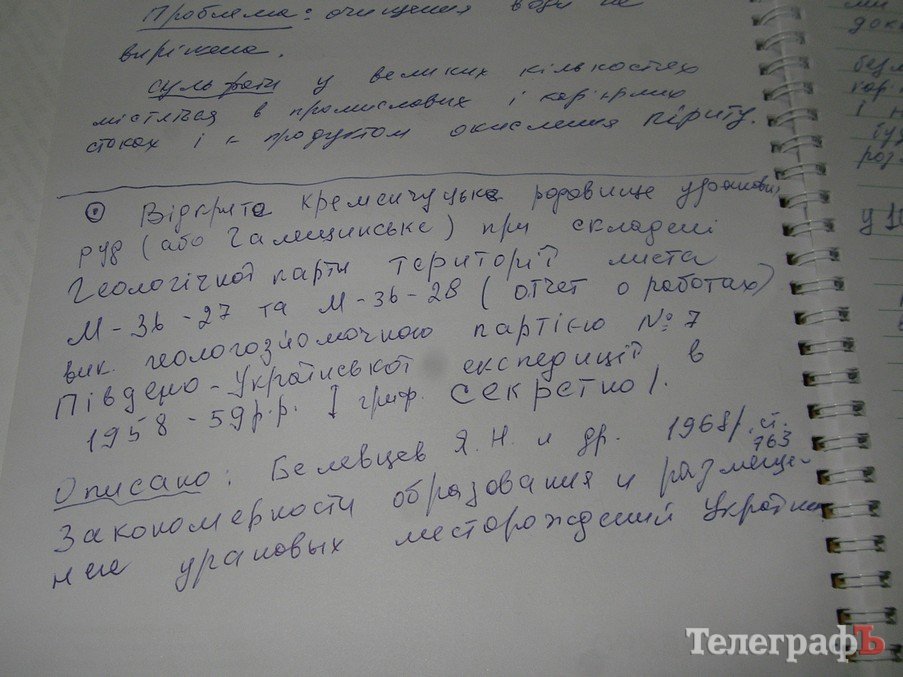 Проблема: очищення води не
вирішена.
Сульфати у великих кількостях
містяться в промислових і кар'єрних
стоках і є продуктом окислення піриту.
Відкрите Кременчуцьке родовище уранових
руд (або Галещинське) при складені
Геологічної карти території листа
М-36-27 та М-36-28 (отчет о работах)
вик. геологозйомочною партією № 7
Південо-Української експедиції в
1958-59р.р. гриф. Секретно).
Описано: Белевцев Я.Н. и др. 1968г. ст.
763
Закономерности образования и размеще-
ние урановых месторождений Украины
ми
док
безл
і н
роз
ТелеграфЪ